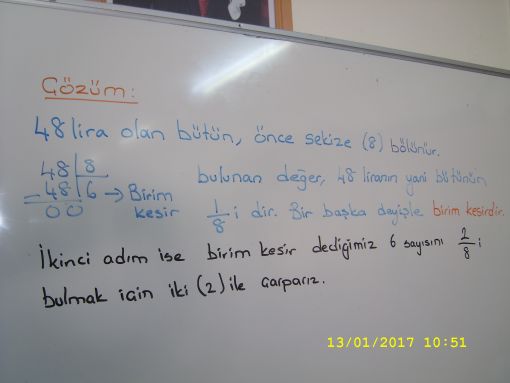 Çözüm:
48 lira olan bütün, önce sekize (8) bölünür.
48 | 8 bulunan değer, 48 liranın yani bütünün
- 48 | 6 → Birim kesir 1/8 i dir. Bir başka deyişle birim kesirdir.
00
İkinci adım ise birim kesir dediğimiz 6 sayısını 2/8 i
bulmak için iki (2) ile çarparız.
13/01/2017 10:51